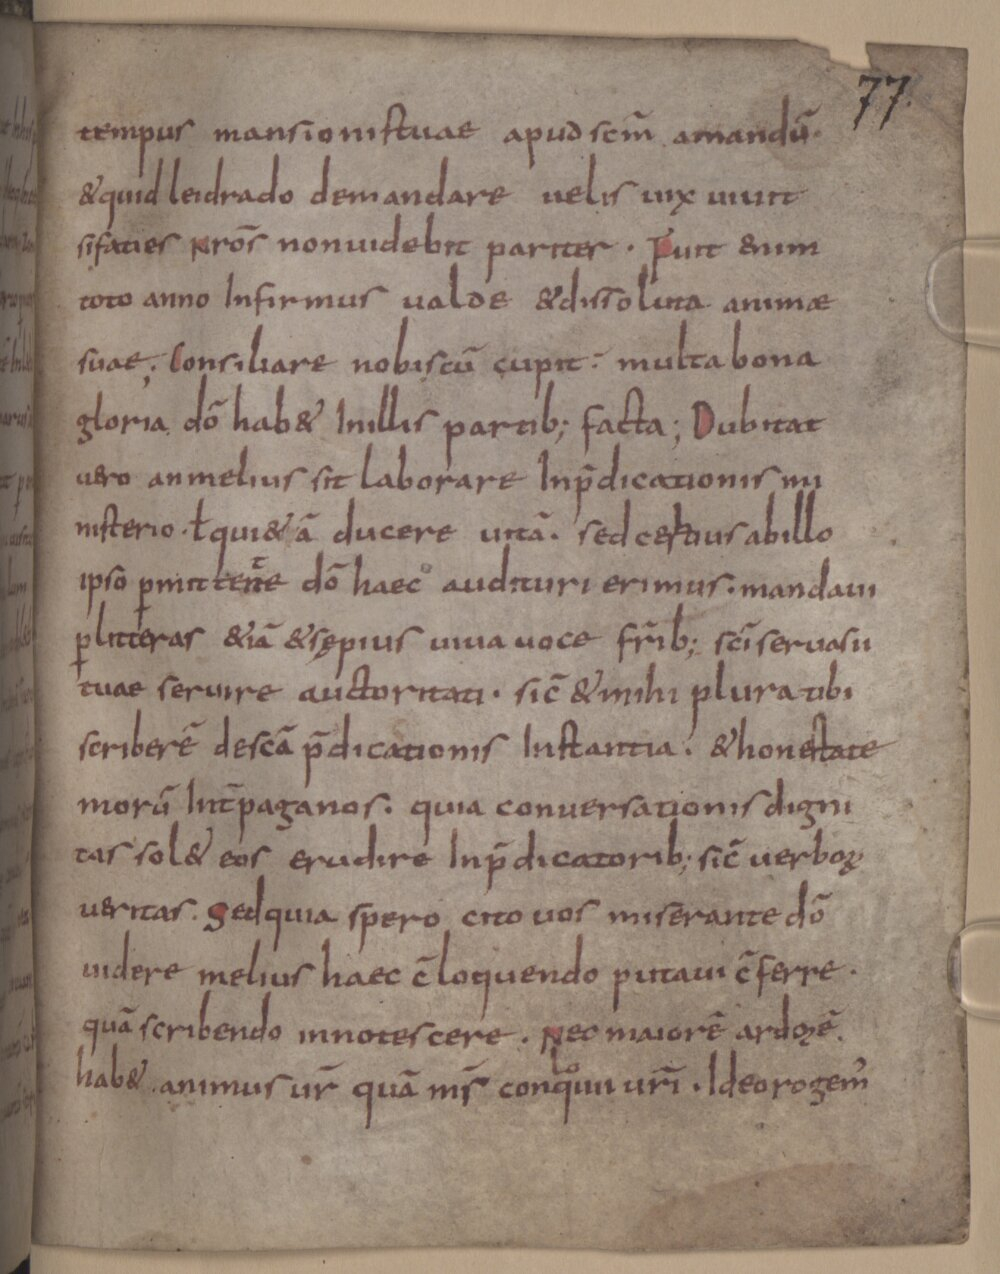 77.
tempus mansionis tuae apud scm̄ amandū.
& quid leidrado demandare uelis uix uiuit
si faties nr̄os non uidebit pariter . Fuit enim
toto anno Infirmus ualde & dissoluta animae
suae; Consiliare nobiscū cupit . multa bona
gloria dō hab& In illis partib; facta; Dubitat
uero an melius sit laborare In p̄dicationis mi
nisterio . ł qui&ā ducere uitā . sed certius ab illo
ipso p̱mittente dō haec audituri erimus . mandaui
p̱ litteras &iā & sępius uiua uoce fr̄ib; sc̄i seruasii
tuae seruire auctoritati . sic̄ & mihi plura tibi
scriberē de scā p̄dicationis Instantia . & honestate
morū Int̄ paganos . quia conuersationis digni
tas sol& eos erudire In p̄dicatorib; sic̄ uerboꝝ
ueritas . Sed quia spero cito uos miserante dō
uidere melius haec c̄loquendo putaui c̄ferre .
quā scribendo innotescere . Nec maiorē ardorē
hab& animus ur̄ quā ms̄ conloqui ur̄i . Ideo rogem̄